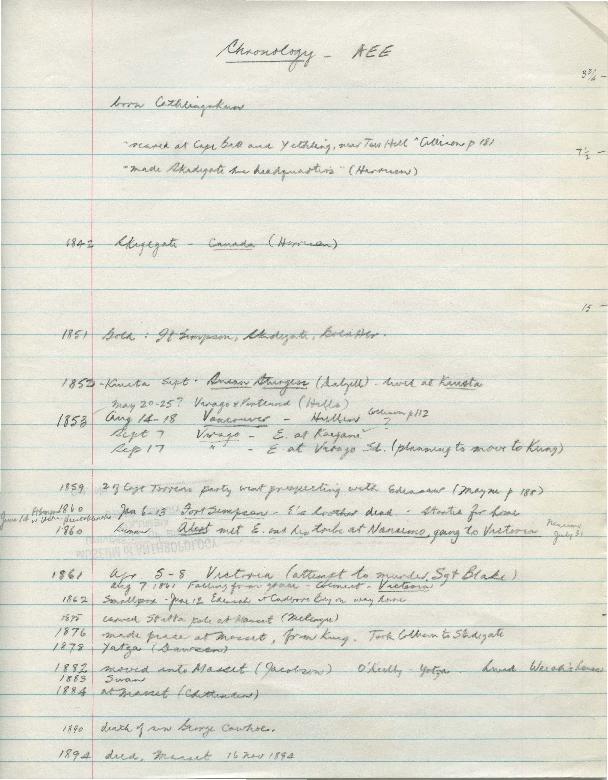 Chronology - AEE
3 3/4 -
born
"reared at Cape Ball and Yethling, near Tow Hill" Collison p 181
7 1/2 -
"made Skidegate his headquarters" (Harrison)
1842 Skidegate - Canada (Harrison)
15 -
1851 Gold : Ft Simpson, Skidegate, Gold Hbr.
1852 - Kiusta Sept. Susan Sturges (Dalzell) - lived at Kiusta
May 20-25? Virago & Portland (Hills)
1853 Aug 14-18 Vancouver - Collison p 112
Sept 7 Virago - E. at Kaigani ?
Sep 17 " - E at Virago Sd. (planning to move to Kung)
1859 2 of Capt Torrens party went prospecting with Edensaw (Mayne p 180)
1860 Jan 6-13 Fort Simpson - E's brother dead - Starts for home
1860 Alert met E. and his tribe at Nanaimo, going to Victoria
July 31
1861 Apr 5-8 Victoria (attempt to murder, Sgt Blake)
Aug 7 1861 Falling from grace - - Victoria
1862 Smallpox - June 12 at Cadboro Bay on way home
carved Stalta pole at Masset (McKenzie)
1876 made peace at Masset, from Kung. Took Collison to Skidegate
1878 Yatza (Dawson)
1882 moved into Masset (Jacobson) O'Reilly - Yatza. lived
1883 Swan
1884 at Masset (Chittenden)
1890 death of son George Cowhoe.
1894 died, Masset 16 Nov 1894